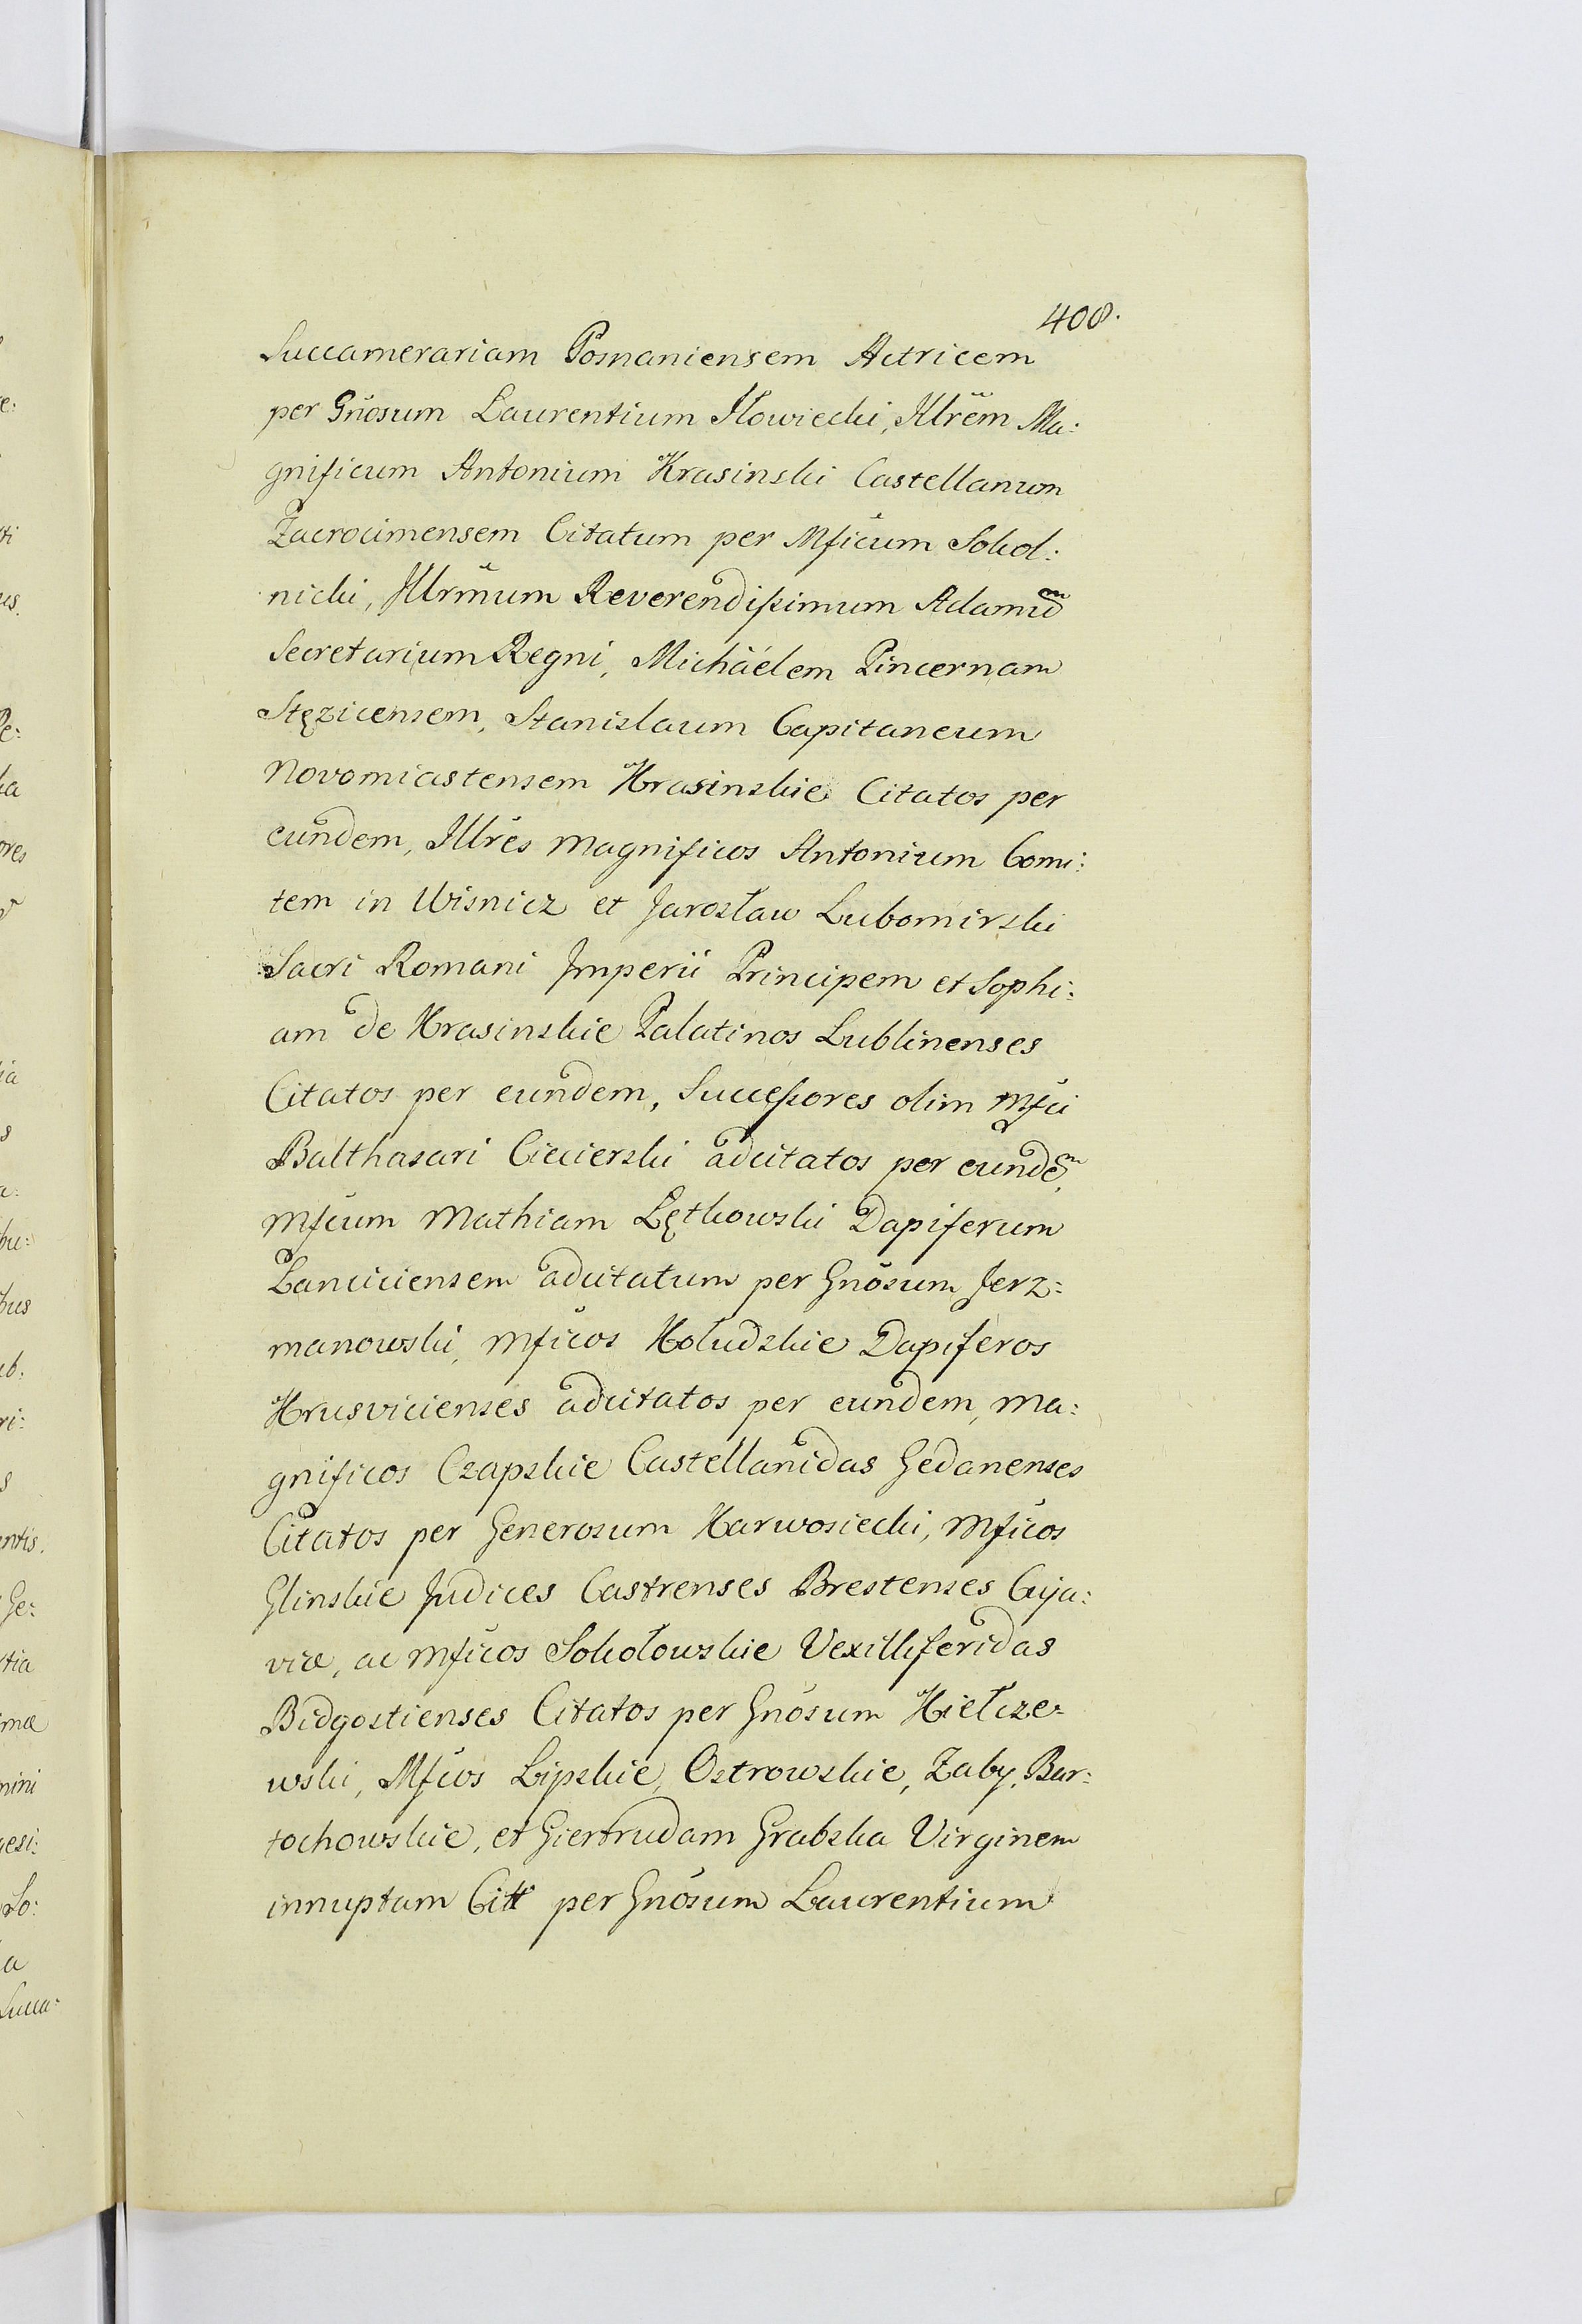 408.
Succamerariam Posnaniensem Actricem
per Gnôsum Laurentium Iłowiecki, Illrêm Ma:
gnificum Antonium Krasinski Castellanum
Zacrocimensem Citatum per Mficum Sokol:
nicki, Illrmum Reverendissimum Adamum
Secretarium Regni, Michäelem Pincernam
Stęzicensem, Stanislaum Capitaneum
Novomiastensem Krasinskie Citatos per
eundem, Illres Magnificos Antonium Comi:
tem in Wisnicz et Jarosław Lubomirski
Sacri Romani Imperii Principem et Sophi:
am de Krasinskie Palatinos Lublinenses
Citatos per eundem, Successores olim Mfci
Balthasari Ciecierski adcitatos per eundem,
Mfcum Mathiam Łętkowski Dapiferum
Lanciciensem adcitatum per Gnosum Jerz:
manowski, Mficos Kołudzkie Dapiferos
Krusvicienses adcitatos per eundem, Ma:
gnificos Czapskie Castellanidas Gedanenses
Citatos per Generosum Karwosiecki, Mficos
Glinskie Judices Castrenses Brestenses Cuja:
viæ, ac Mficos Sokołowskie Vexilliferidas
Bidgostienses Citatos per Gnosum Kiełcze:
wski, Mfcos Lipskie, Ostrowskie, Zaby, Bar:
tochowskie, et Giertrudam Grabska Virginem
innuptam Citt per Gnosum Laurentium